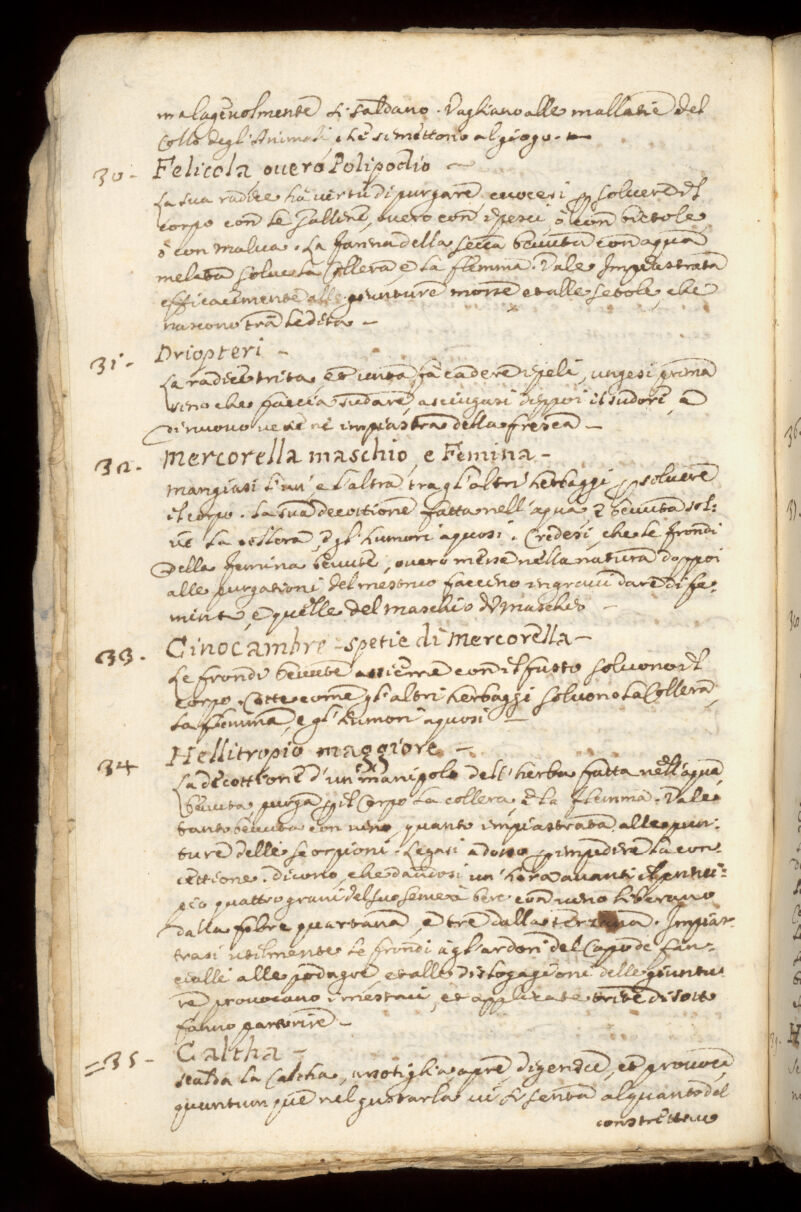 malagevolmente si saldano. Vagliano alle mallatie del
Collo degl'Animali che si mettono al giogo.
30. Felicola overo Polipodio
La sua radice ha virtù di purgare, cuocesi p solvere il
corpo con le Galline, overo con i pesci, ò con bietole
ò con malva. La farina della secca bevuta con aqua
melata solve la Collera, e la flemma. Vale Impiastrata
efficacemente alle gionture mosse et alle setole, che
nascono trà le dita
31. Driopteri
La radice trita, et unta, fà cadere i peli, ungesi prima
sino che faccia sudare, asciugasi dippoi il sudore, e
di nuovo ve se ne impiastra della fresca
32. Mercorella maschio, e Femina
Mangiasi l'un' e l'altra, tra gl'altri herbaggi p solvere
il corpo. La sua decottione fatta nell'aqua, e bevuta sol-
ve la collera, e gl'humori aquosi. Credesi, che le frondi
della femina bevute, overo messe nella natura doppoi
alle purgationi del mestruo faccino ingravidare di fe-
mine, e quelle del maschio di maschio
33. Cinocambre spetie di Mercorella
Le frondi bevute assieme con il fusto solvono il
corpo. Cotte come gl'altri herbaggi solvono la Collera,
la flemma, e gl'humori aquosi
34 Hellitropio maggiore
La decottione d'un manipolo dell'herba fatta nell'aqua,
bevuta purga p il Corpo la collera, e la flemma. Vale
tanto bevuta con vino, quanto impiastrata alle pun-
ture delli scorpioni. Legasi adosso p impedire la con-
cettione. Dicono, che dandosi un'hora avanti il
quattro grani del suo seme à bere con vino liberano
dalla febre quartana, e tre dalla terzana. Impias-
trasi utilmente le frondi à gl'ardori del Capo de fan-
ciulli alle podagre, et alle dislogagioni delle giuntu-
re provocano i mestrui, et applicate trite di sotto
fanno partorire
35. Caltha
Scalda la Caltha, apre, digerisce, et provoca
quantunque nel gustarla vi si senta alquanto del
constrettivo